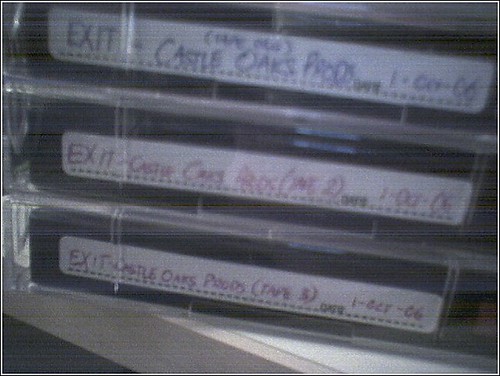 (TAPE ONE)
EXIT - CASTLE OAKS PRODS DATE 1-OCT-06
EXIT-CASTLE OAKS PRODS (TAPE 2) DATE 1-OCT-06
EXIT-CASTLE OAKS PRODS (TAPE 3) DATE 1-OCT-06